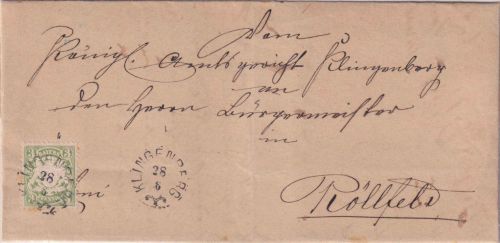 Vom
Königl. Amtsgericht Klingenberg
an
den Herrn Bürgermeister
in
Röllfeld
KLINGENBERG
28
6
KLINGENBERG
28
6
BAYERN